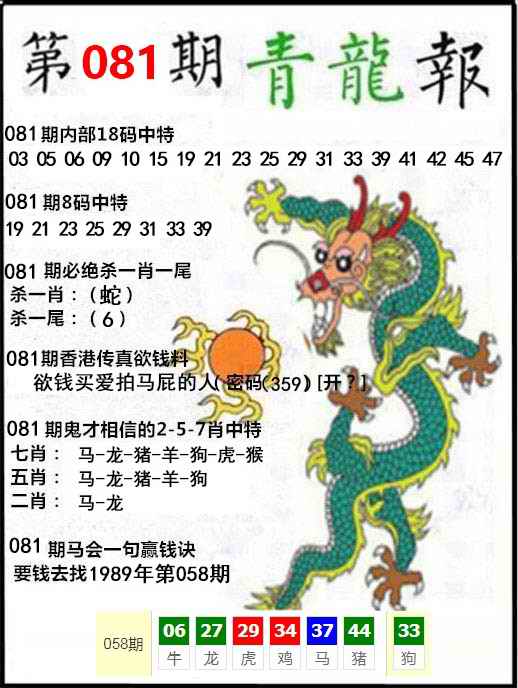 第081期青龍報
081期内部18码中特
03 05 06 09 10 15 19 21 23 25 29 31 33 39 41 42 45 47
081期8码中特
19 21 23 25 29 31 33 39
081 期必绝杀一肖一尾
杀一肖：（蛇）
杀一尾：（6）
081期香港传真欲钱料
欲钱买爱拍马屁的人( 密码(359) [开？]
081期鬼才相信的2-5-7肖中特
七肖： 马-龙-猪-羊-狗-虎-猴
五肖： 马-龙-猪-羊-狗
二肖： 马-龙
081 期马会一句赢钱诀
要钱去找1989年第058期
058期 06 27 29 34 37 44 33
牛 龙 虎 鸡 马 猪 狗